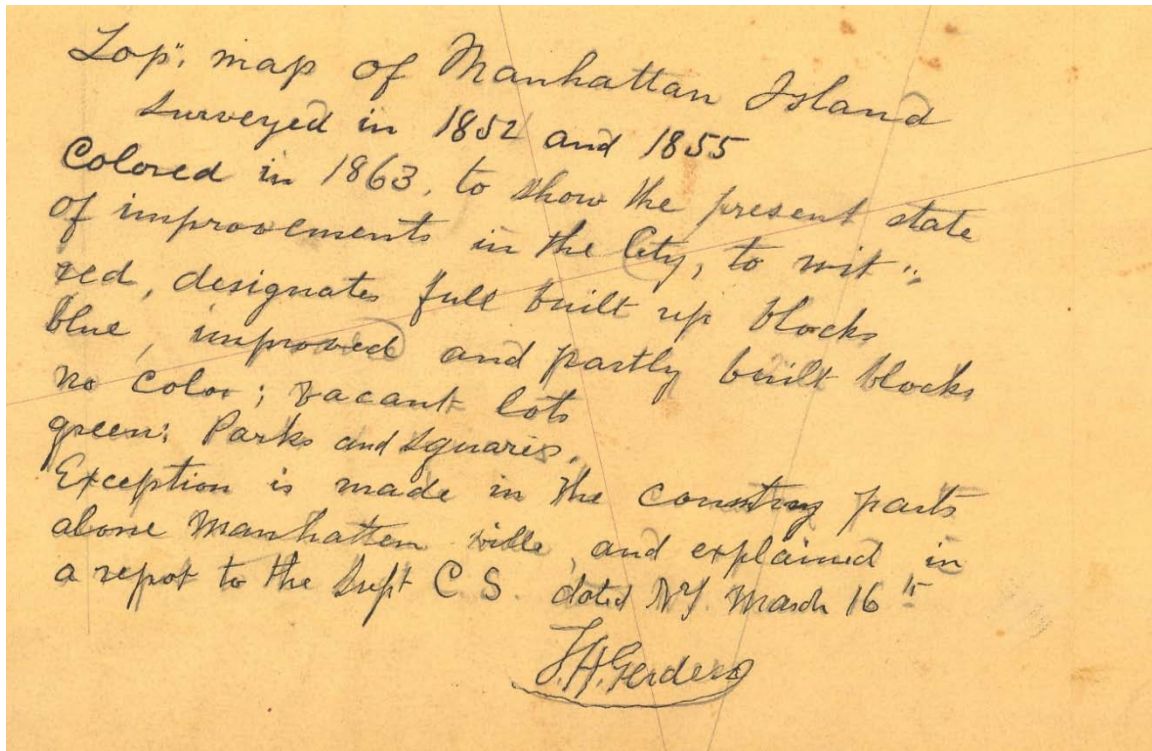 Top". map of Manhattan Island
surveyed in 1852 and 1855
Colored in 1863, to show the present state
of improovements in the City, to wit ":
red, designates full built up blocks
blue, improoved and partly built blocks
no color; vacant lots
green; Parks and Squares.
Exception is made in the country parts
above Manhatten ville, and explained in
a repot to the Supt C S. dated NY. March 16th
F.H. Gerdes